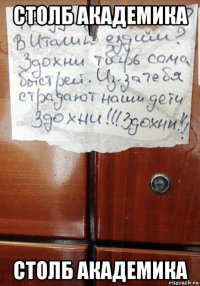 СТОЛБ АКАДЕМИКА
В Италию ездим?
Здохни тварь сама
быстрей. Из за тебя
страдают наши дети
Здохни!!! Здохни!!
СТОЛБ АКАДЕМИКА
risovach.ru